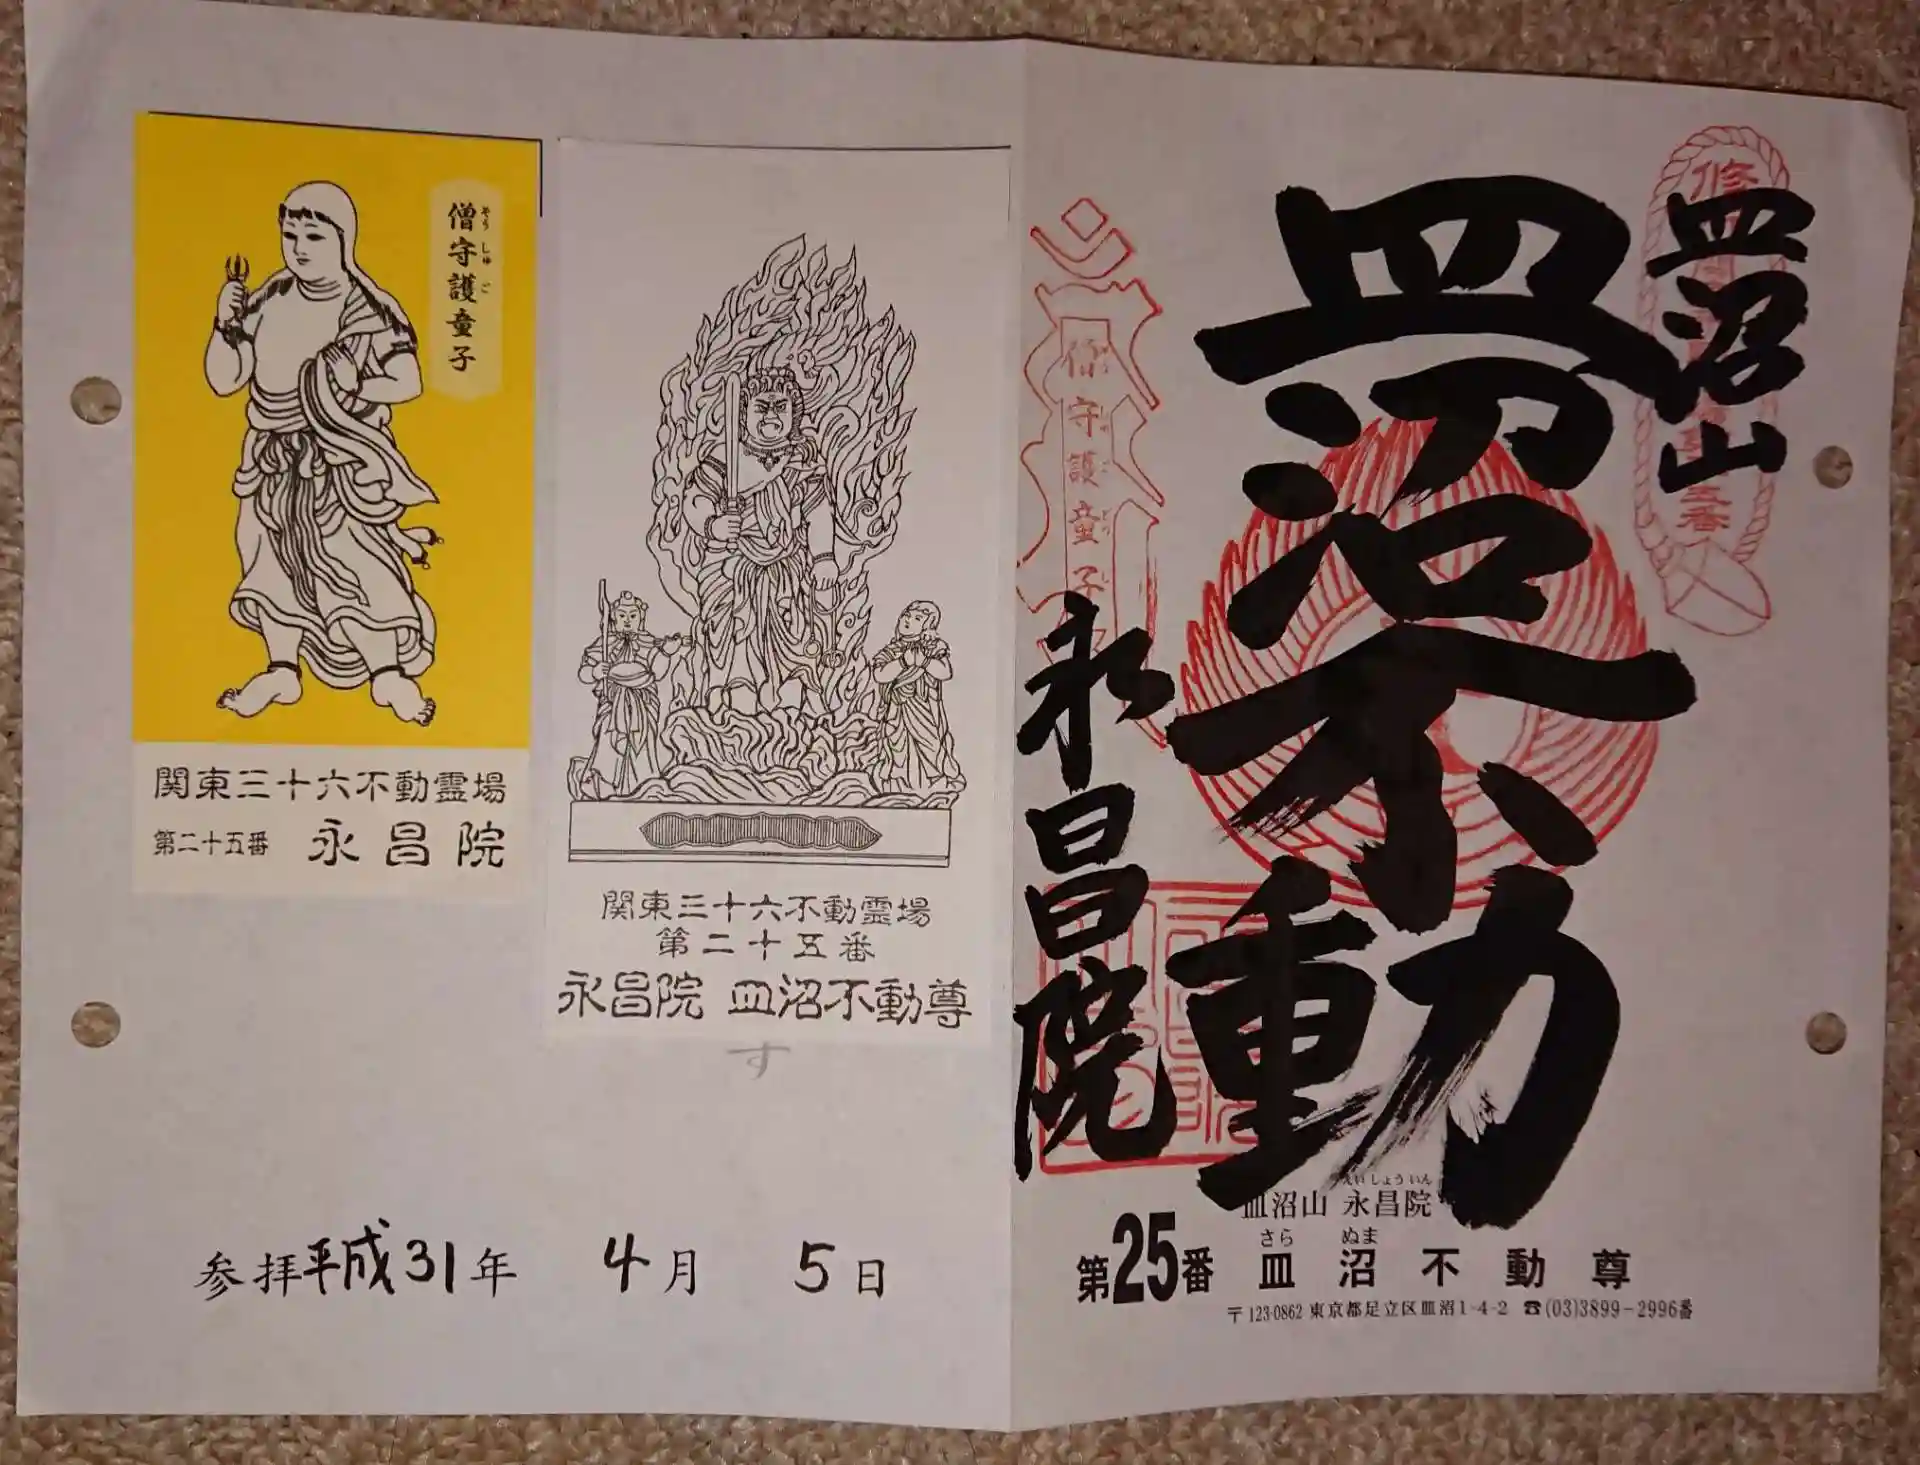 皿沼山
皿沼不動
永昌院
僧守護童子
そうしゅご
関東三十六不動霊場
第二十五番 永昌院
関東三十六不動霊場
第二十五番
永昌院 皿沼不動尊
す
参拝平成31年 4月 5日
えいしょういん
皿沼山 永昌院
さら ぬま
第25番 皿沼不動尊
〒123-0862 東京都足立区皿沼1-4-2 ☎(03)3899-2996番